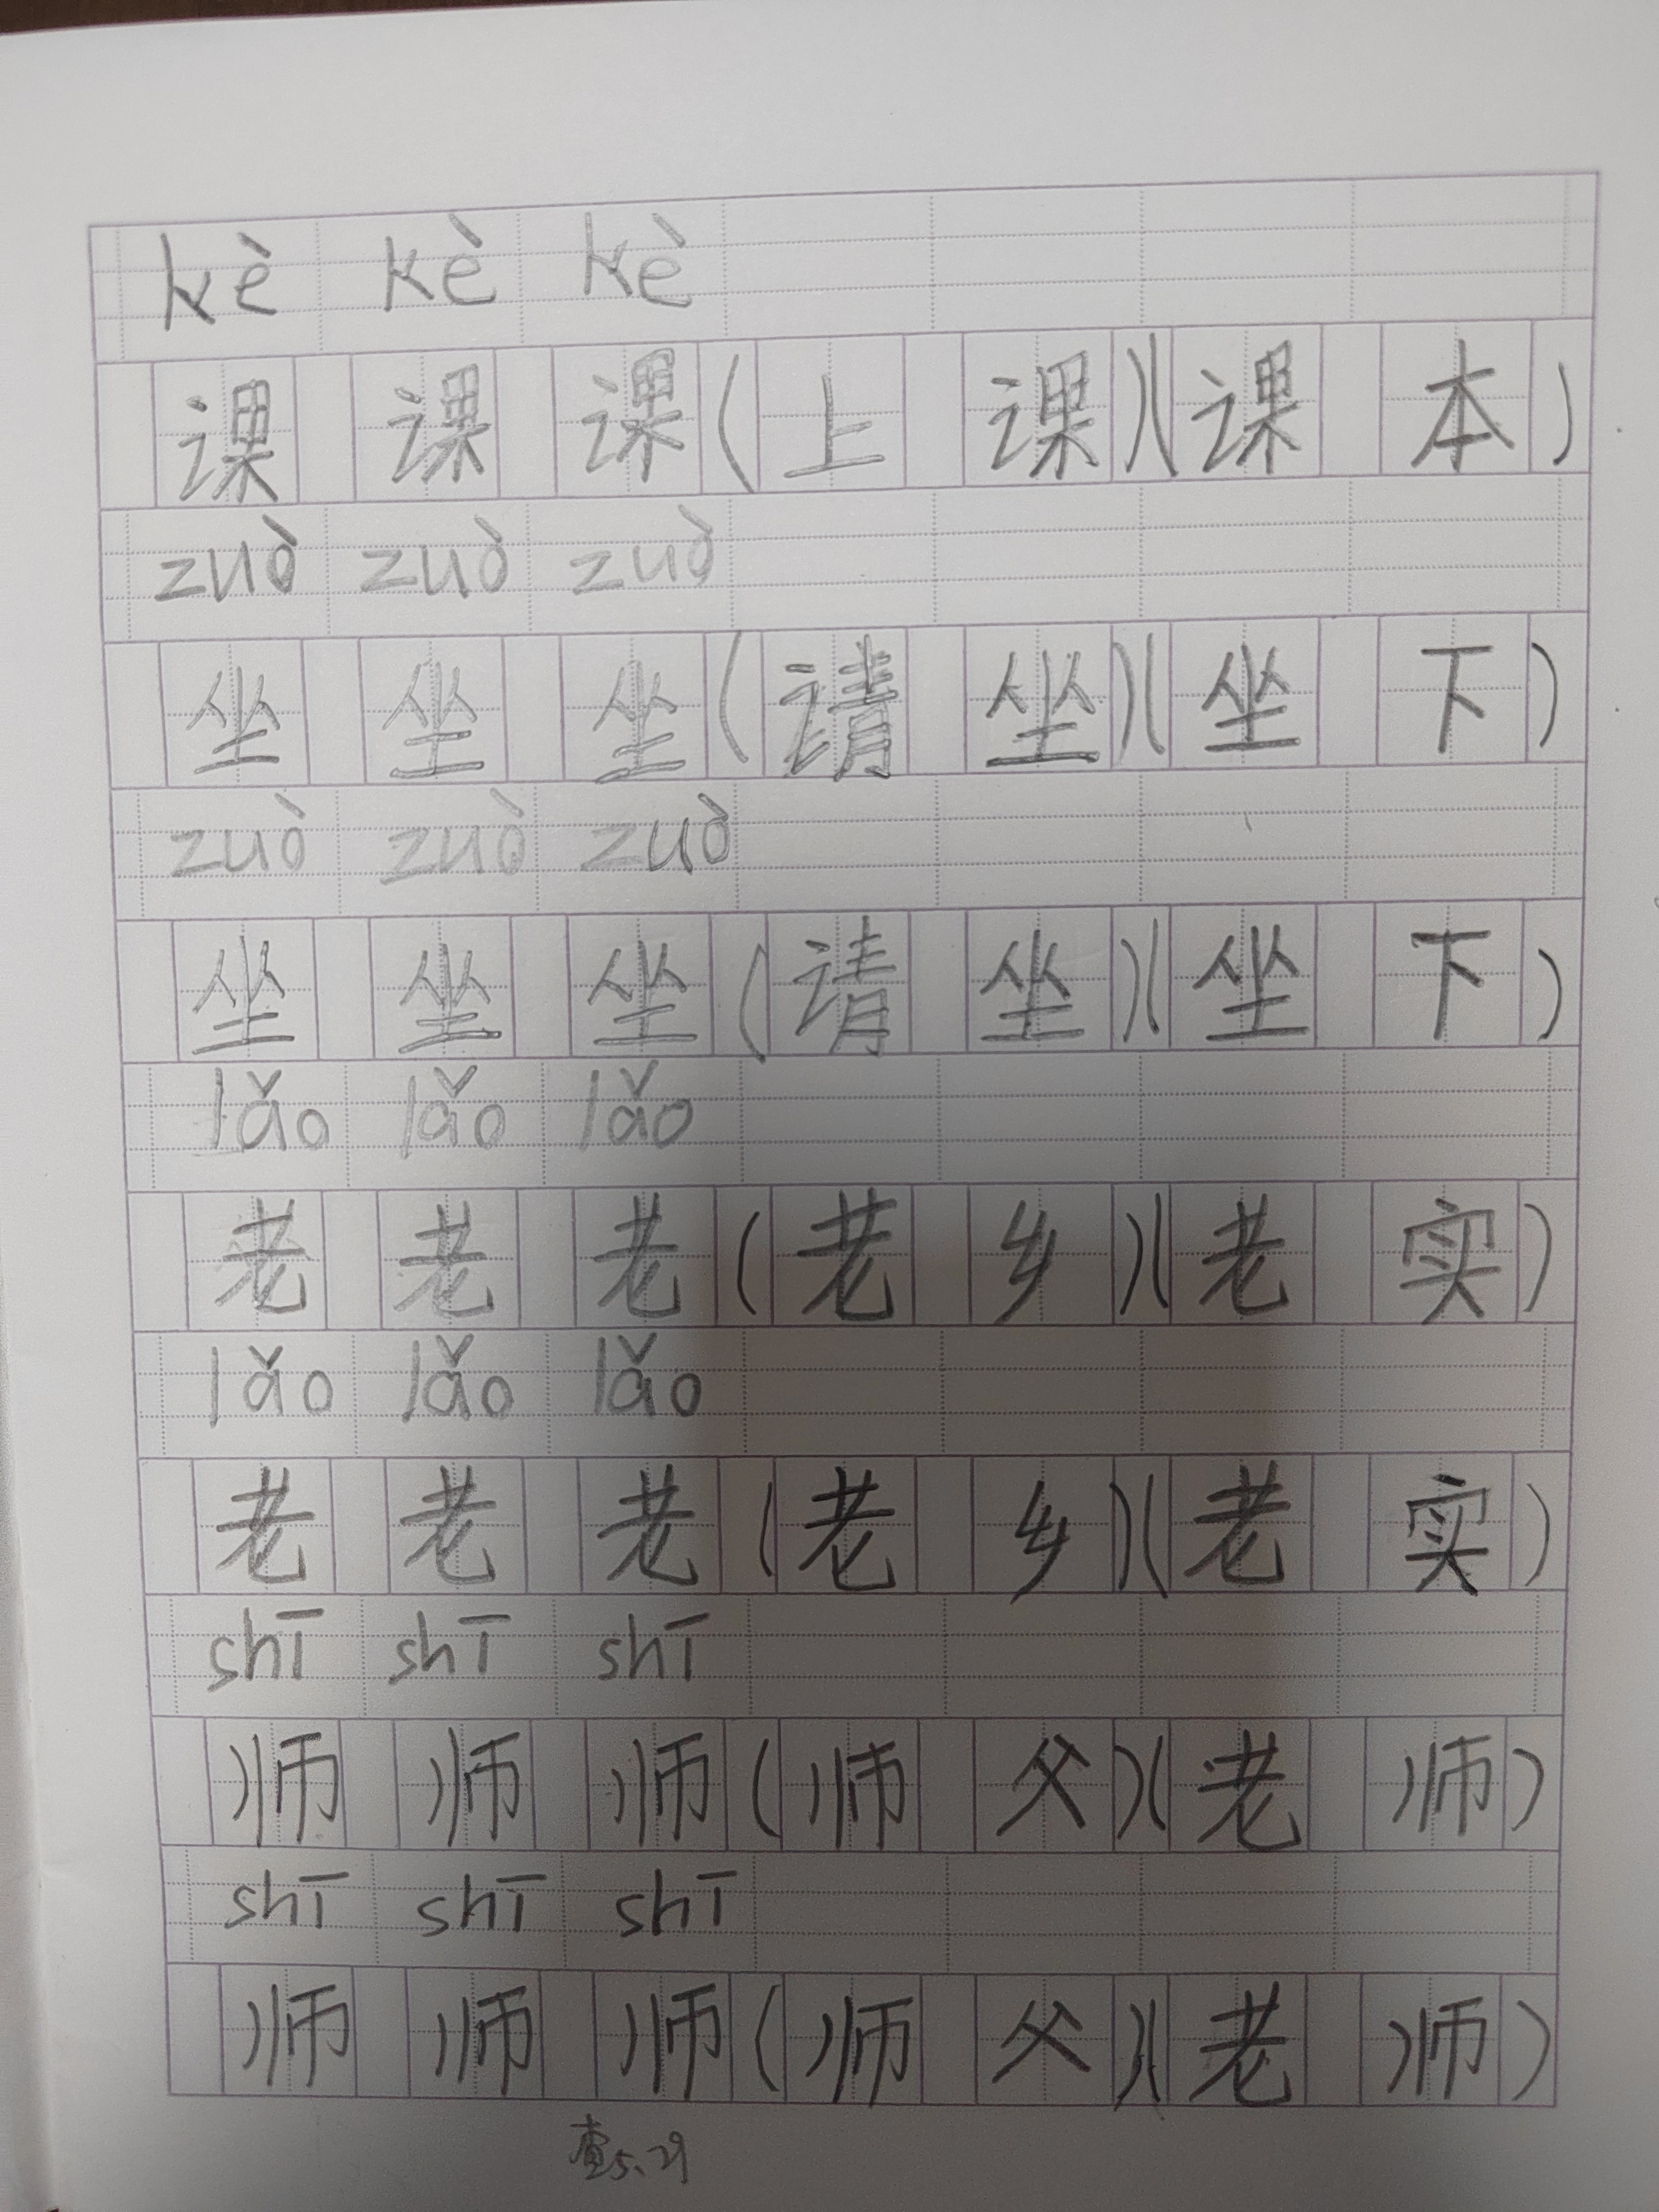 kè kè kè
课 课 课 (上 课)(课 本)
zuò zuò zuò
坐 坐 坐 (请 坐)(坐 下)
zuò zuò zuò
坐 坐 坐 (请 坐)(坐 下)
lǎo lǎo lǎo
老 老 老 (老 乡)(老 实)
lǎo lǎo lǎo
老 老 老 (老 乡)(老 实)
shī shī shī
师 师 师 (师 父)(老 师)
shī shī shī
师 师 师 (师 父)(老 师)
查5.29